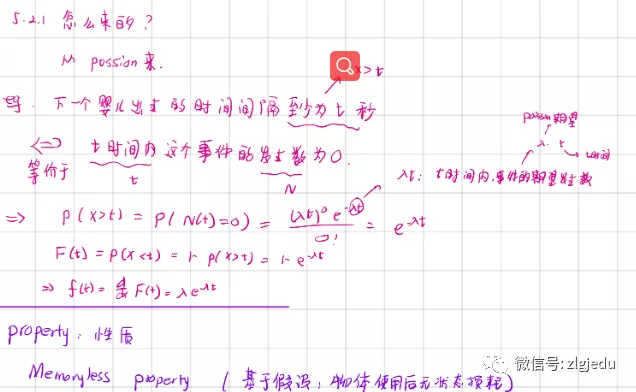 5.2.1 怎么来的?
从 possion 来.
x>t
导. 下一个婴儿出生的时间间隔至少为 t 秒
<=> t时间内这个事件的发生数为0.
等价于
t
N
possion 期望
λ t
λt: t时间内,事件的期望发生数
=> P(X>t) = P(N(t)=0) = (λt)^0 e^-λt / 0! = e^-λt
F(t) = P(X<t) = 1- P(X>t) = 1- e^-λt
=> f(t) = d/dt F(t) = λe^-λt
property: 性质
Memoryless property (基于假设,物体使用后无状态损耗)
微信号: zlgjedu